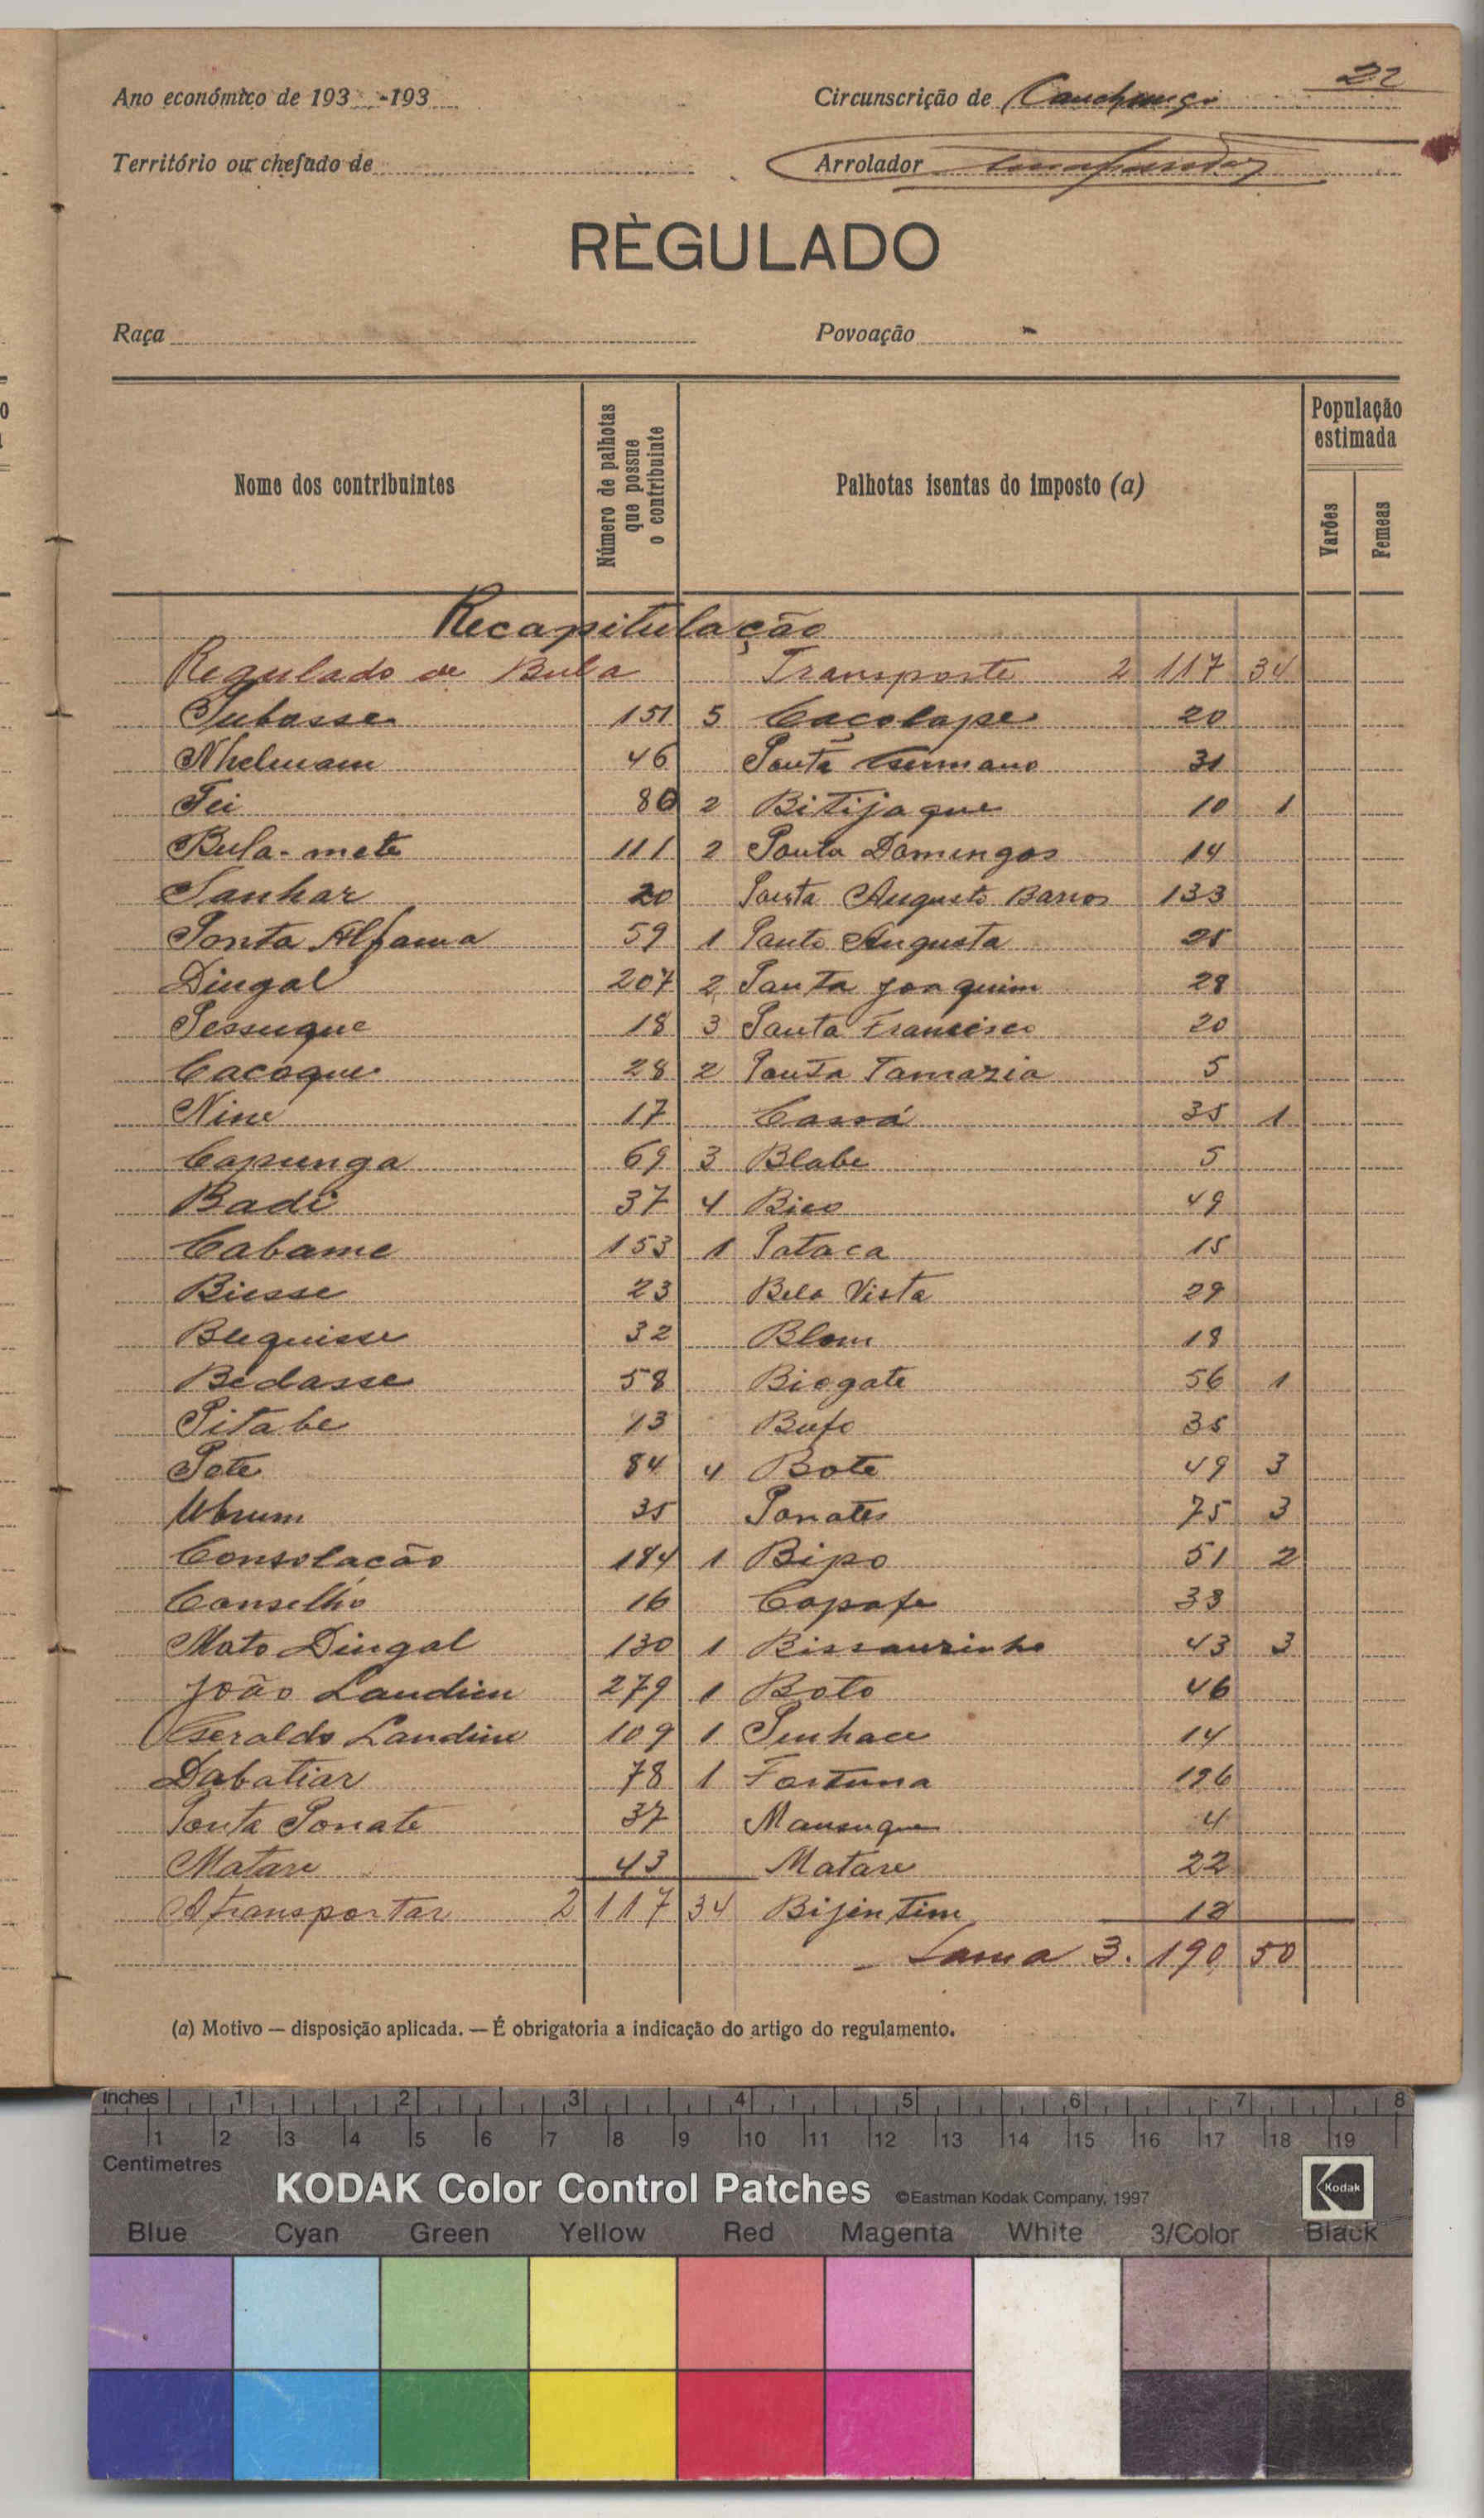 22
Ano económico de 193 -193
Circunscrição de
Território ou chefado de
Arrolador
RÈGULADO
Raça
Povoação
Nome dos contribuintes
Número de palhotas que possue o contribuinte
Palhotas isentas do imposto (a)
População estimada
Varões
Femeas
Recapitulação
Regulado de Bula Transporte 2 117 34
151 5 Caçolape 20
Nhelmam 46 Ponta Germano 31
Tei 80 2 Bitijaque 10 1
Bula-mete 111 2 Ponta Domingos 14
20 Ponta Augusto Barros 133
Ponta Alfama 59 1 Ponta Augusta 25
Dingal 207 2 Ponta Joaquim 28
Pessuque 18 3 Ponta Francisco 20
Cacoque 28 2 Ponta Tamazia 5
Nine 17 35 1
Capunga 69 3 Blabe 5
Badi 37 4 Bico 49
Cabame 153 1 Pataca 15
Biesse 23 Bela Vista 29
Blequisse 32 Blom 18
Bedasse 58 Biogate 56 1
Pitabe 13 Bufo 35
Pete 84 4 Bote 49 3
35 Ponates 75 3
Consolação 184 1 Bipo 51 2
Conselho 16 Capafe 33
Mato Dingal 130 1 Bissaurinho 43 3
João Landim 279 1 Boto 46
Geraldo Landim 109 1 Penhace 14
Dabatiar 78 1 Fortuna 126
Ponta Ponate 37 4
Matare 43 Matare 22
A transportar 2 117 34 Bijentim 12
Soma 3.190 50
(a) Motivo — disposição aplicada. — É obrigatoria a indicação do artigo do regulamento.
inches 1 2 3 4 5 6 7 8
1 2 3 4 5 6 7 8 9 10 11 12 13 14 15 16 17 18 19
Centimetres
KODAK Color Control Patches ©Eastman Kodak Company, 1997 Kodak
Blue Cyan Green Yellow Red Magenta White 3/Color Black